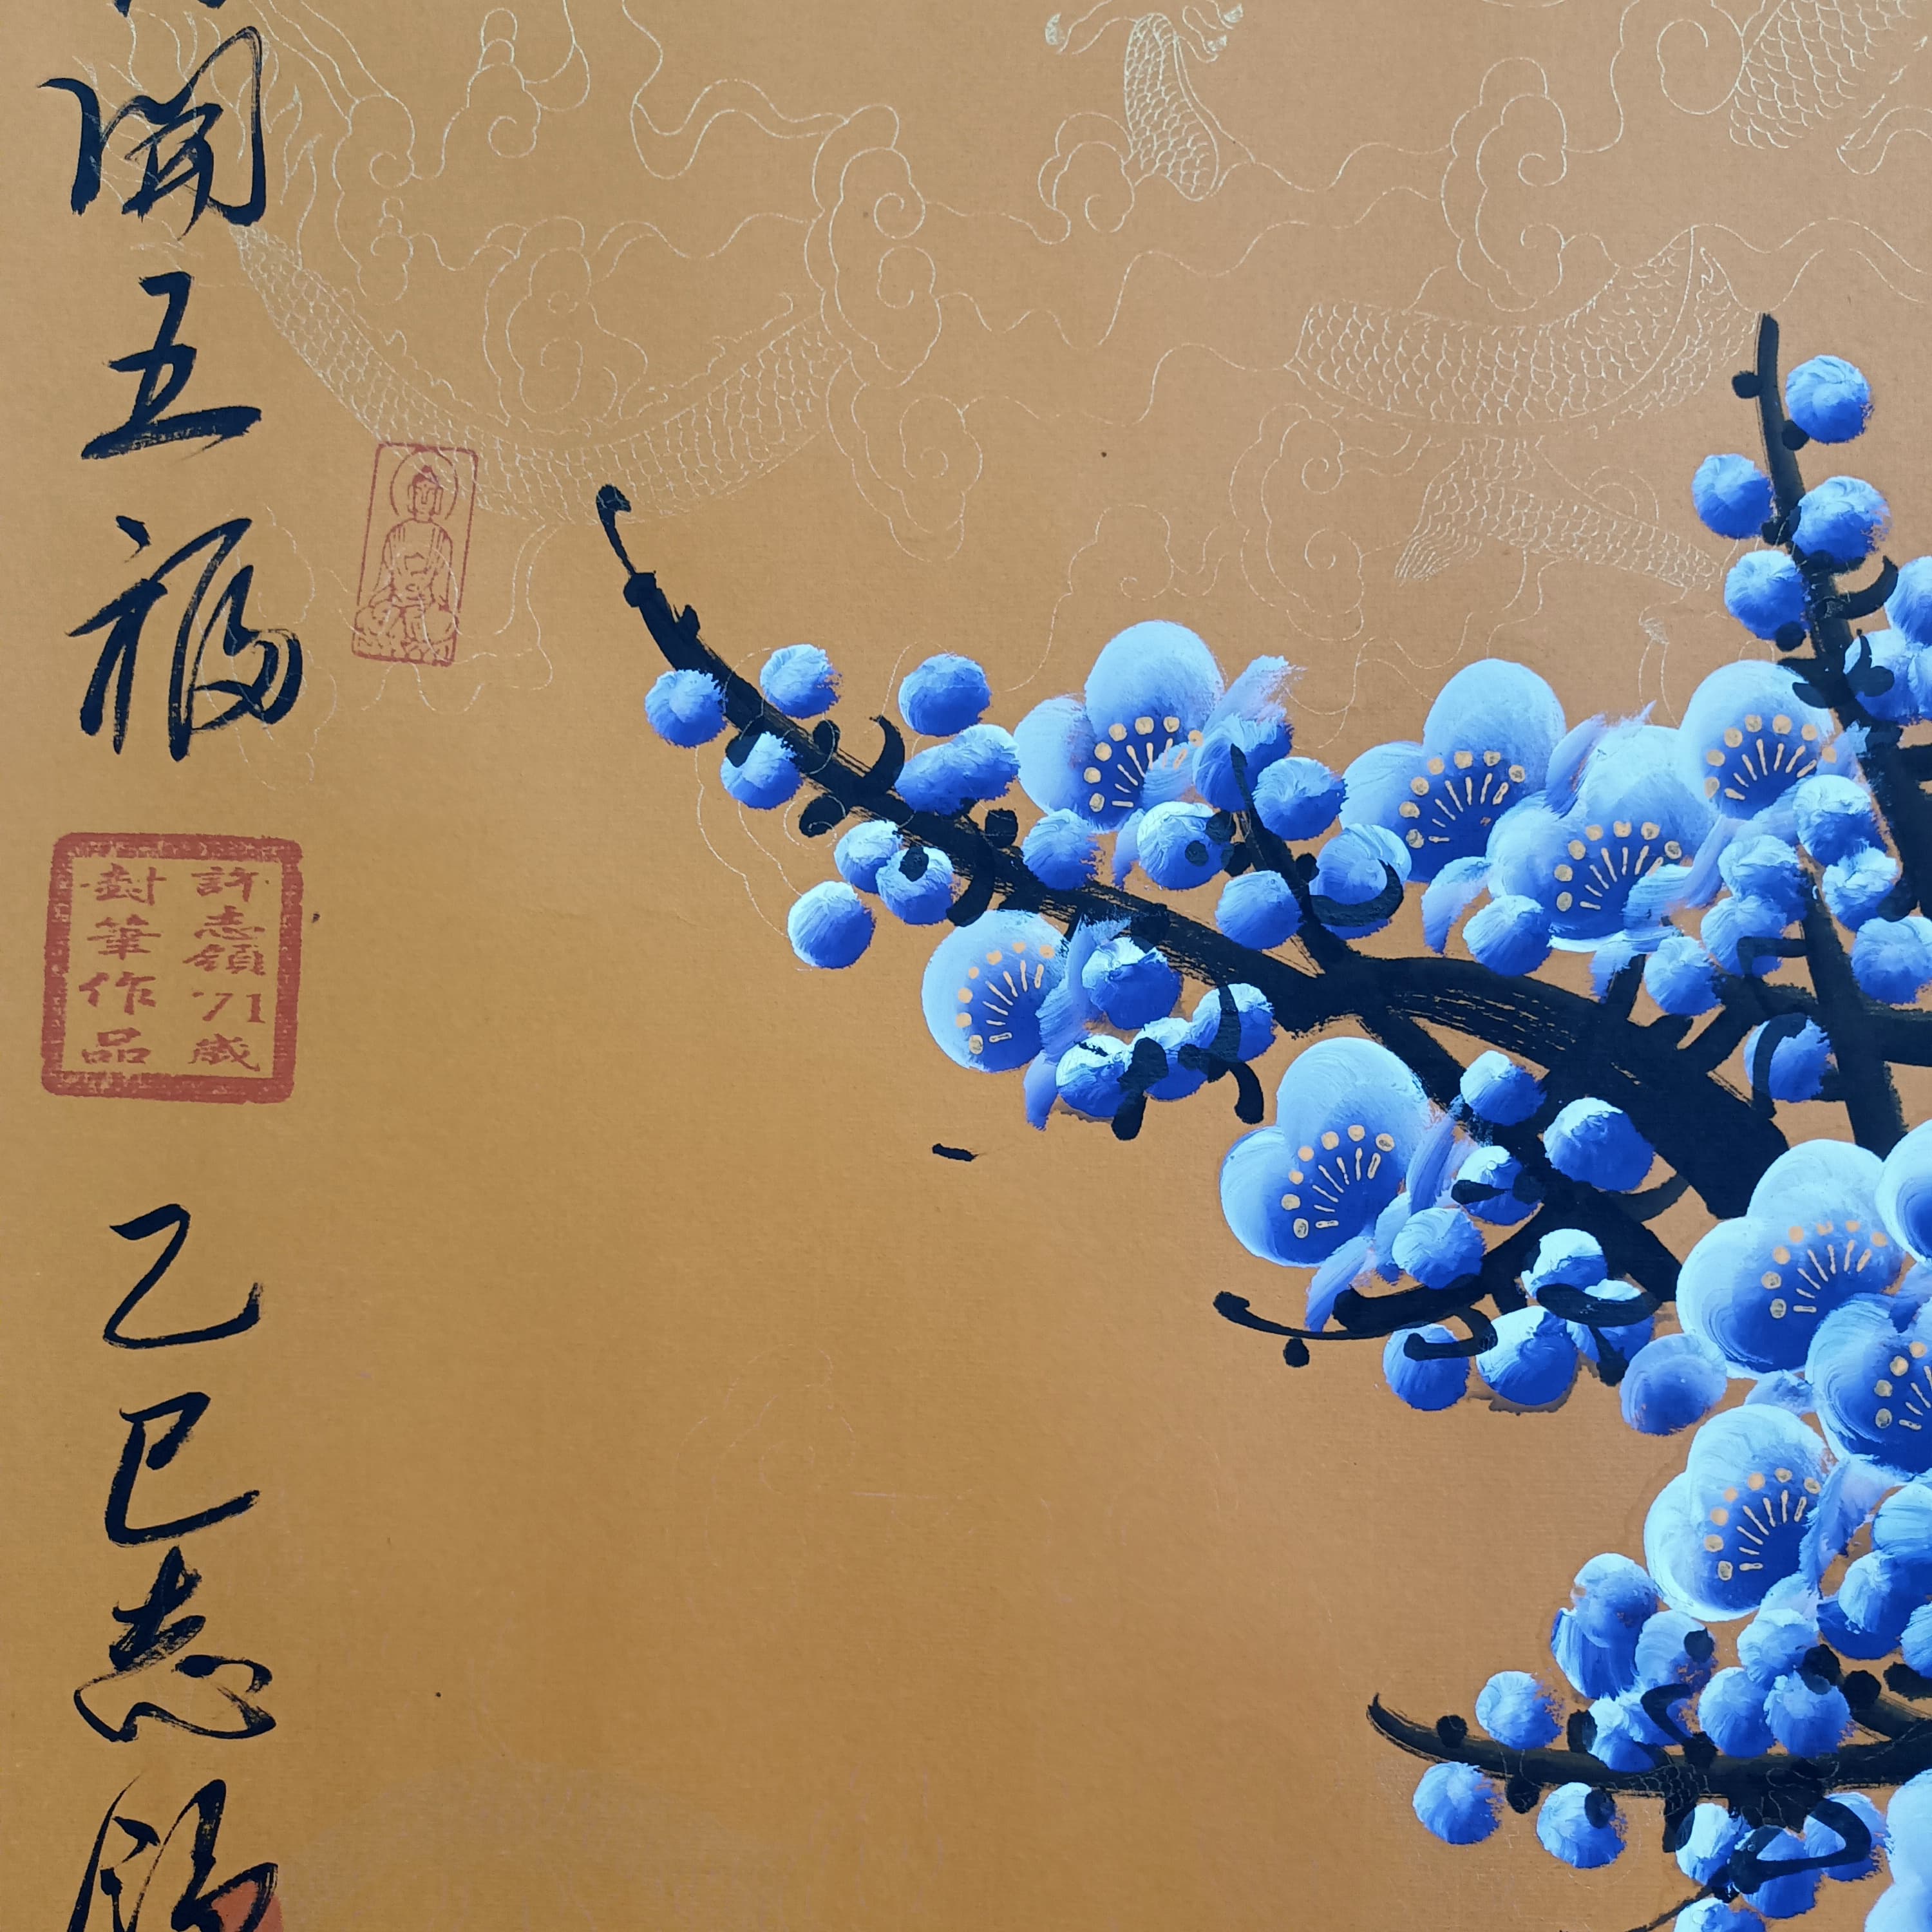 開五福
許志領71歲
封筆作品
乙巳志領